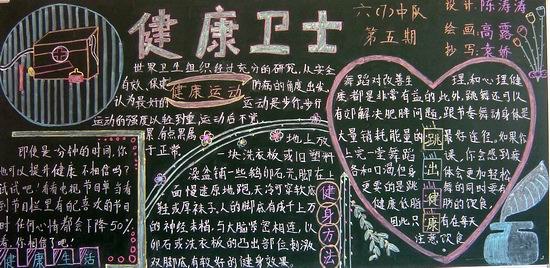 健康卫士
六(1)中队
第五期
设计:陈涛涛
绘画:高露
抄写:袁娇
世界卫生组织经过充分的研究,从安全
有效、保健
健康运动
防病的角度出发,
认为最好的
运动是步行,步行
运动的强度以轻到重,运动后不累
于正常。
即使是一分钟的时间,你
也可以提升健康,不相信吗?
试试吧!看看电视节目单,当看
到节目栏里有配套的节目
时,任何心情都会下降50%
看,你相信了吧!
健康生活
地上放
一块洗衣板或旧塑料
澡盆铺一些鹅卵石,光脚在上
面慢速原地跑,天冷可穿软底
鞋或厚袜子,人的脚底有成千上万
的神经末梢,与大脑紧密相连,以
卵石或洗衣板的凸出部位刺激
双脚底,有较好的健身效果。
健身方法
舞蹈对改善生理和心理健
康都是非常有益的,此外,跳舞还可以
有效解决肥胖问题,跟节奏舞动身体是
大量消耗能量的最好途径。如果你
上完一堂舞蹈课,你会感到疲
各和口渴,但身体会更加轻松,
更要的是跳舞的同时要有
健康低脂肪的饮食,
因此,只有在每天
注意饮食
跳出健康